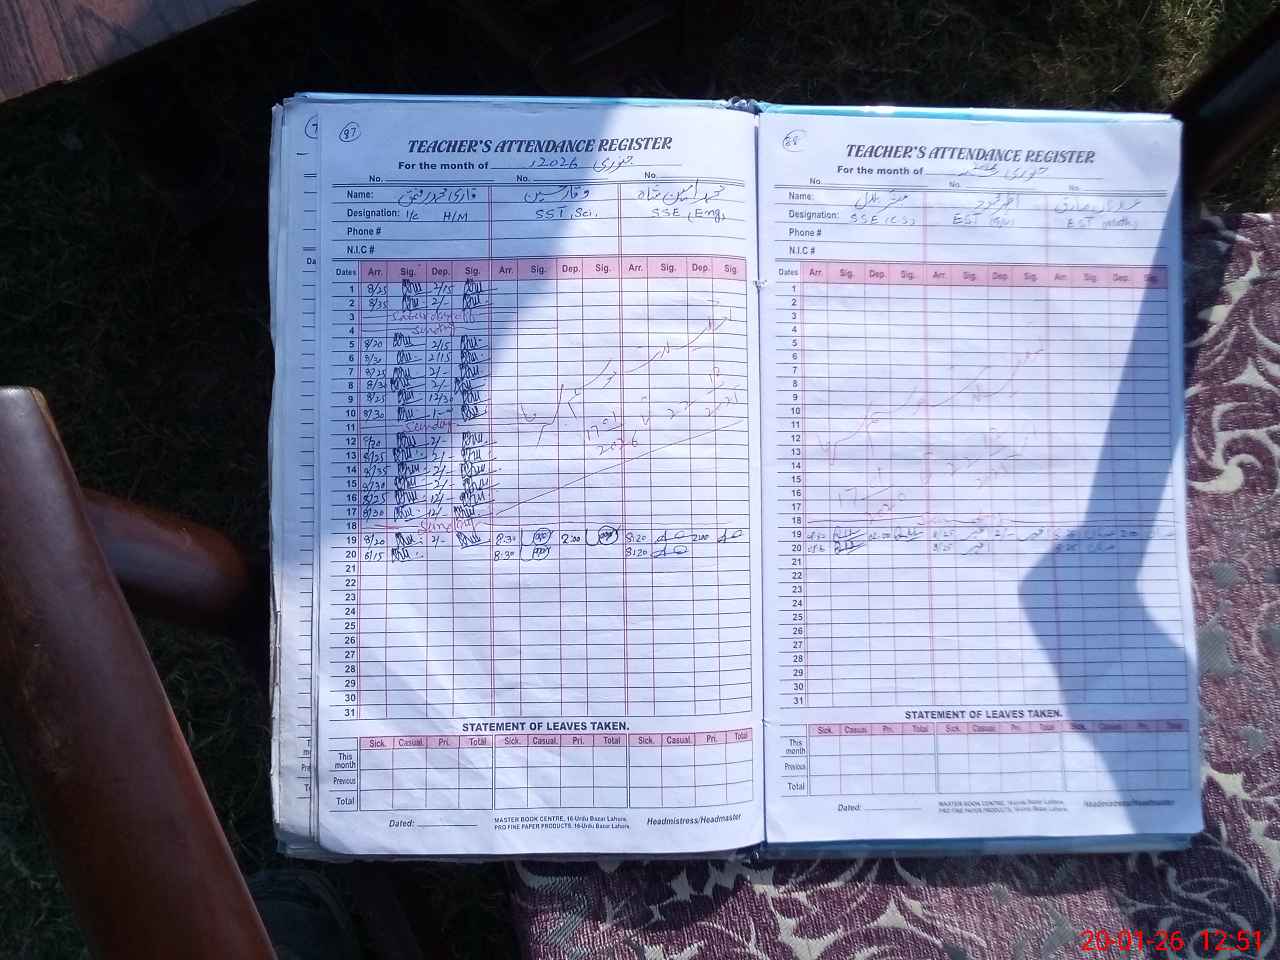 87
TEACHER'S ATTENDANCE REGISTER
For the month of جنوری 2026ء
No. No. No.
Name: قاری محمد رفیق وقار حسین محمد امین شاہ
Designation: I/c H/M SST, Sci, SSE (Eng)
Phone #
N.I.C #
Dates Arr. Sig. Dep. Sig. Arr. Sig. Dep. Sig. Arr. Sig. Dep. Sig.
1 8/25 2/15
2 8/35 2/-
3 Saturday off
4 Sunday
5 8/20 2/15
6 8/30 2/15
7 8/25 2/-
8 8/30 2/-
9 8/25 12/30
10 8/30 1-
11 Sunday
12 8/20 2/-
13 8/25 2/-
14 8/25 2/-
15 8/30 2/-
16 8/25 12/-
17 8/30 12/-
18 Sunday
19 8/20 2/- 8:30 2:00 8:20 2:00
20 8/15 8:30 8:20
21
22
23
24
25
26
27
28
29
30
31
STATEMENT OF LEAVES TAKEN.
Sick. Casual. Pri. Total Sick. Casual. Pri. Total Sick. Casual. Pri. Total
This month
Previous
Total
Dated:
MASTER BOOK CENTRE, 16-Urdu Bazar Lahore.
PRO FINE PAPER PRODUCTS, 16-Urdu Bazar Lahore.
Headmistress/Headmaster
88
TEACHER'S ATTENDANCE REGISTER
For the month of جنوری 2026
No. No. No.
Name:
Designation: SSE (CS) EST EST (Math)
Phone #
N.I.C #
Dates Arr. Sig. Dep. Sig. Arr. Sig. Dep. Sig. Arr. Sig. Dep. Sig.
1
2
3
4
5
6
7
8
9
10
11
12
13
14
15
16
17
18
19 02:00 8/25 2/- 200
20 8/25
21
22
23
24
25
26
27
28
29
30
31
STATEMENT OF LEAVES TAKEN.
Sick. Casual. Pri. Total Sick. Casual. Pri. Total Sick. Casual. Pri. Total
This month
Previous
Total
Dated:
MASTER BOOK CENTRE, 16-Urdu Bazar Lahore.
PRO FINE PAPER PRODUCTS, 16-Urdu Bazar Lahore.
Headmistress/Headmaster
20-01-26 12:51